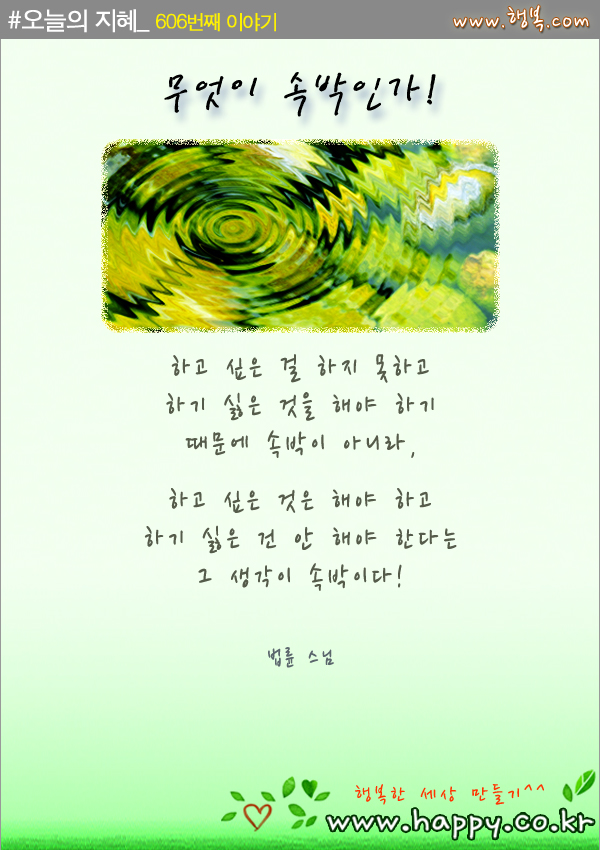 #오늘의 지혜_ 606번째 이야기
www.행복.com
무엇이 속박인가!
하고 싶은 걸 하지 못하고
하기 싫은 것을 해야 하기
때문에 속박이 아니라,
하고 싶은 것은 해야 하고
하기 싫은 건 안 해야 한다는
그 생각이 속박이다!
법륜 스님
행복한 세상 만들기^^
www.happy.co.kr